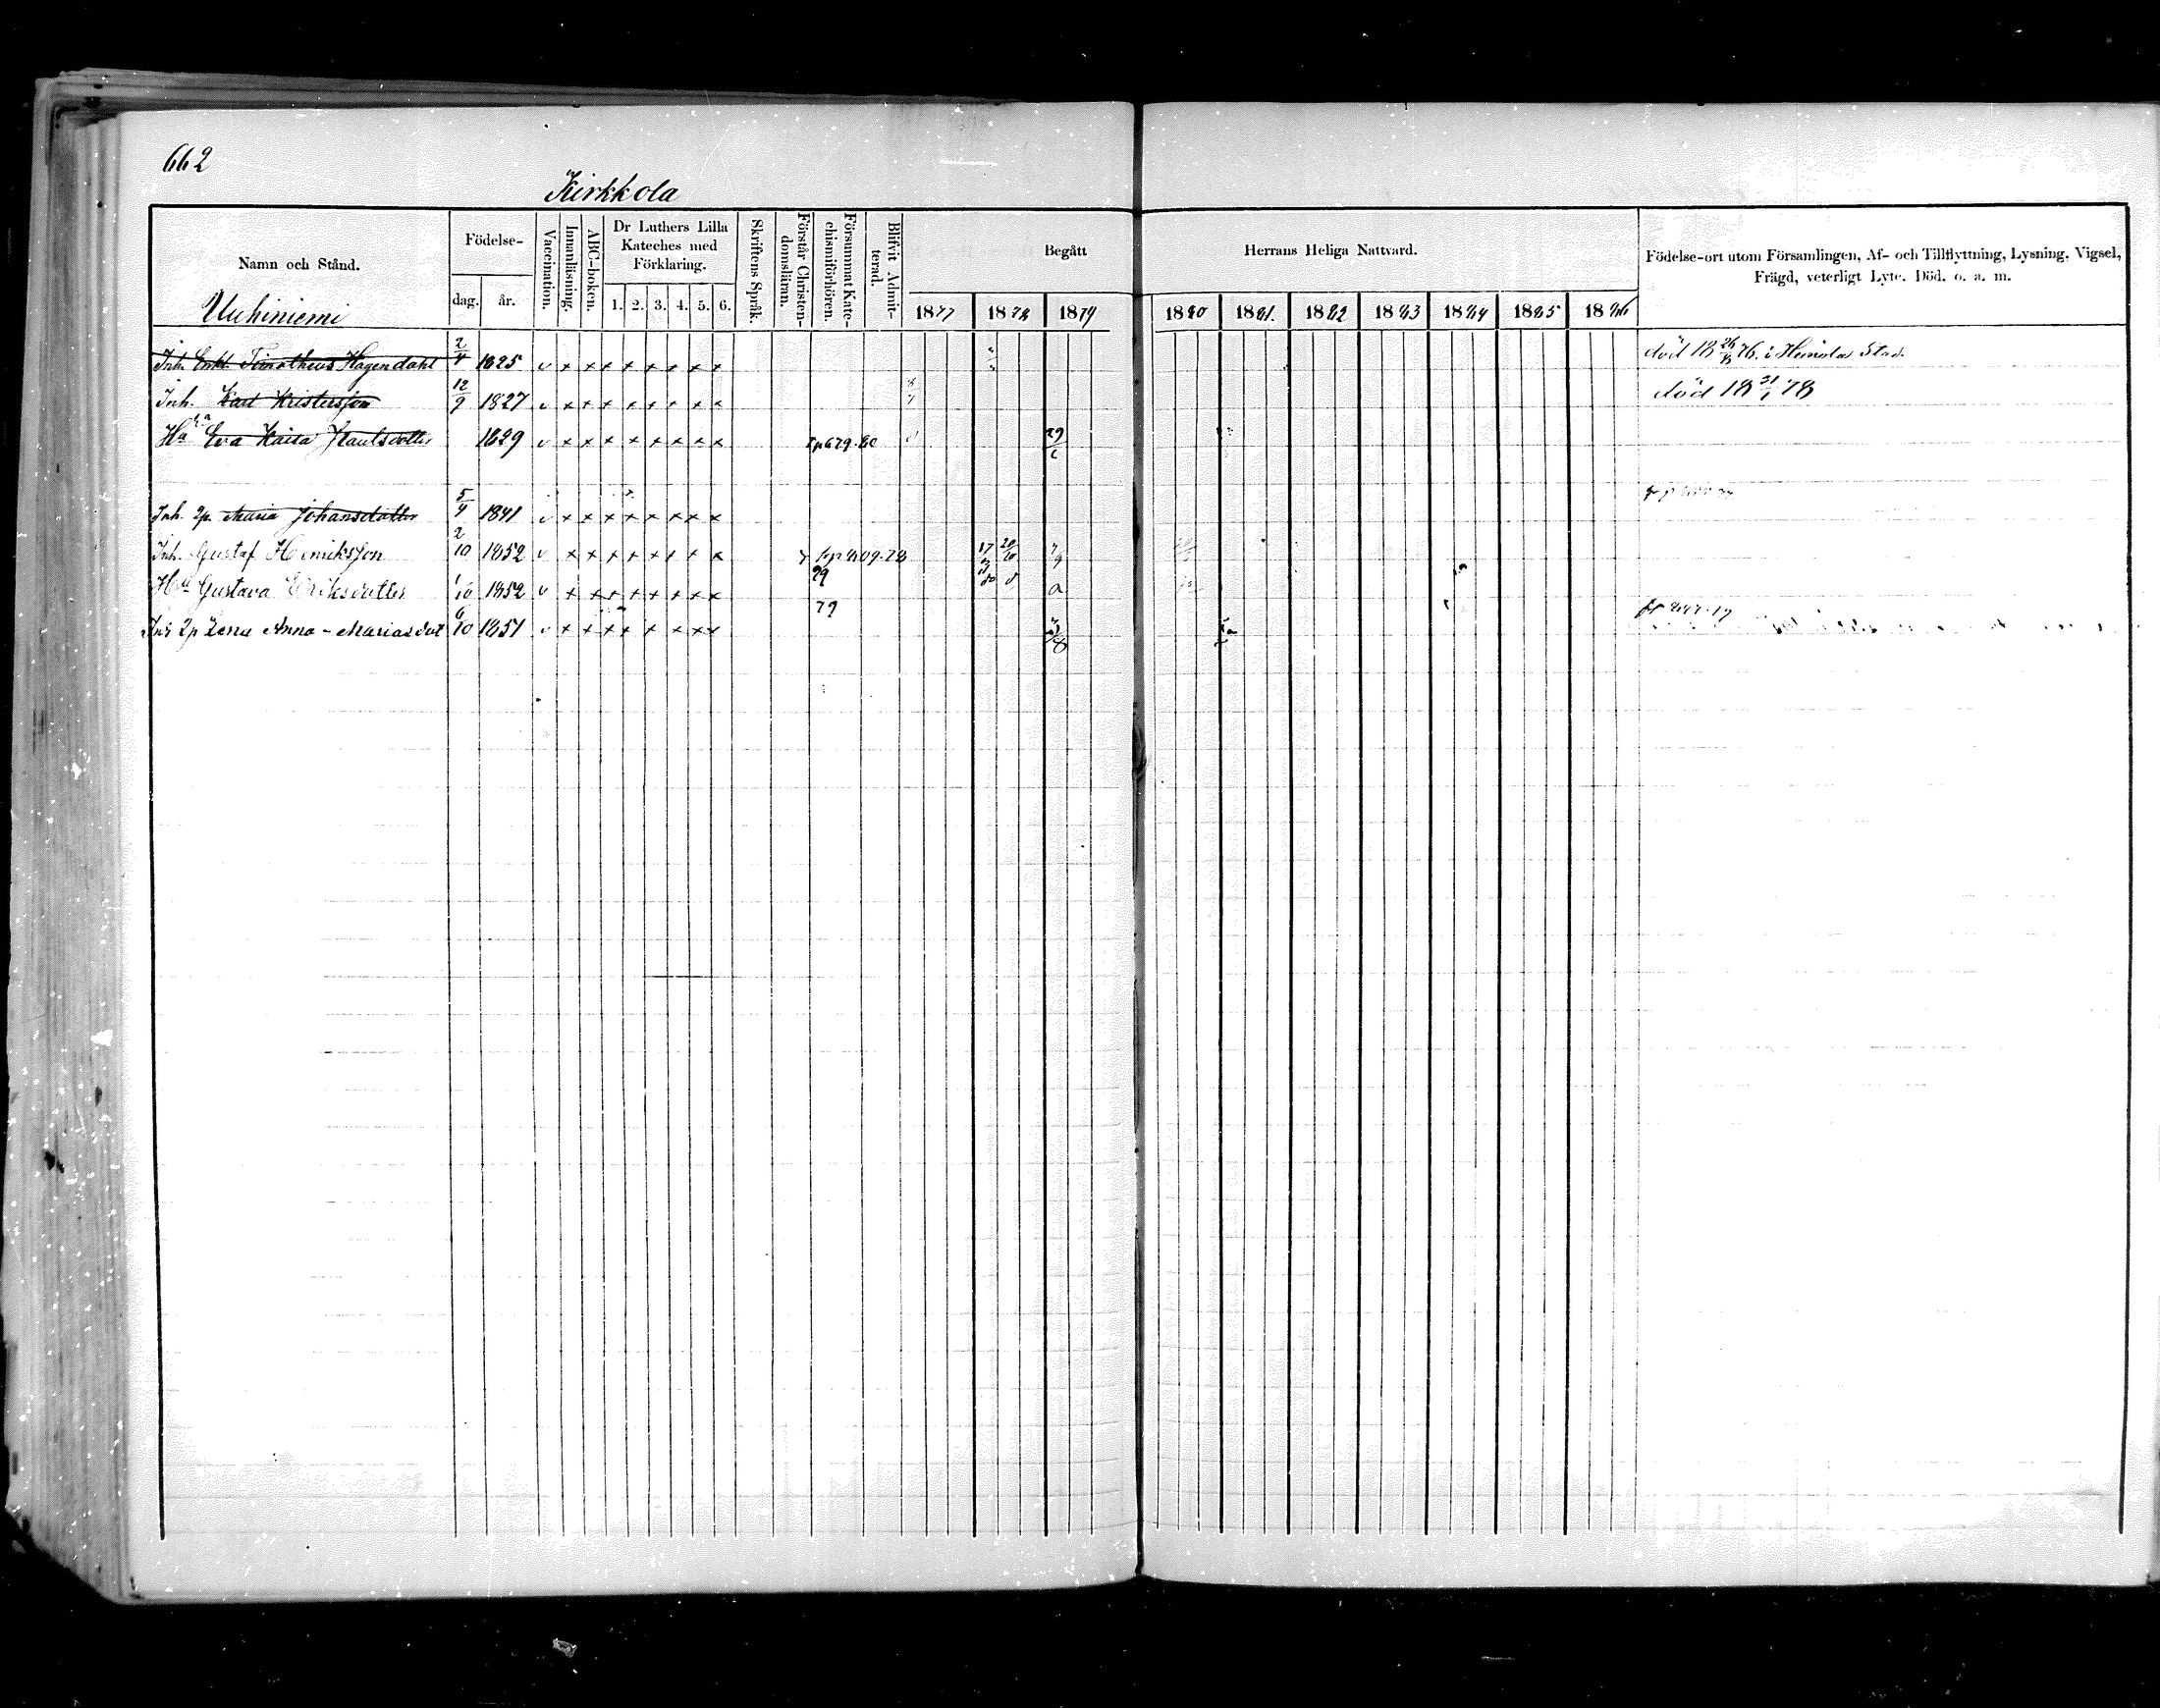 662
Kirkkola
Namn och Stånd.
Födelse-
dag.
år.
Vaccination.
Innanläsning.
ABC-boken.
Dr Luthers Lilla
Kateches med
Förklaring.
1. 2. 3. 4. 5. 6.
Skriftens Språk.
Förstår Christen-
domsläran.
Försummat Kate-
chismiförhören.
Blifvit Admit-
terad.
Begått
Herrans Heliga Nattvard.
1877 1878 1879 1880 1881. 1882 1883 1884 1885 1886
Födelse-ort utom Församlingen, Af- och Tillflyttning, Lysning, Vigsel,
Frägd, veterligt Lyte. Död. o. a. m.
Uuhiniemi
Inh. Enkl. Timotheus Hagendahl 2/4 1825 v x x x x x x x x död 18 26/8 76. i Heinola Stad.
Inh. Karl Kristersson 12/9 1827 v x x x x x x x x död 18 31/1 78
Hu Eva Kaisa Paulsdotter 1829 v x x x x x x x x 29
Inh. 2p. Maria Johansdotter 5/4 1841 v x x x x x x x x
Inh. Gustaf Henriksson 2/10 1852 v x x x x x x x
Hu Gustava Eriksdotter 1852 v x x x x x x x x 79
Inh 2p Lena Anna-Mariasdot 6/10 1851 v x x x x x x x x 79